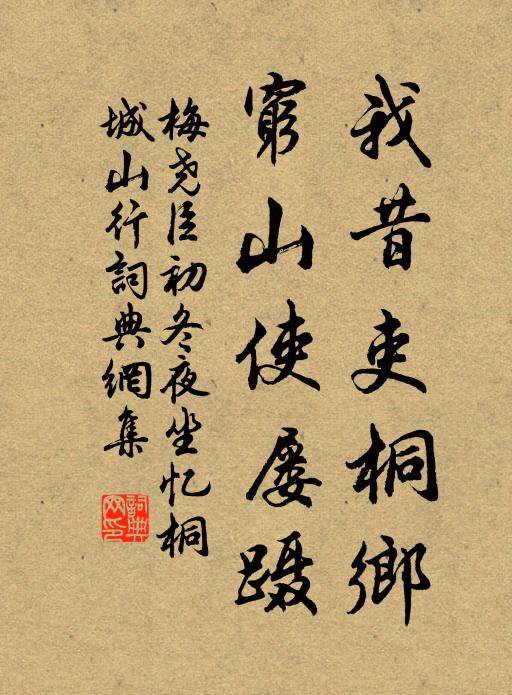 我昔吏桐鄉
窮山使屡蹑
梅尧臣初冬夜坐忆桐
城山行詞典網集
詞典網印